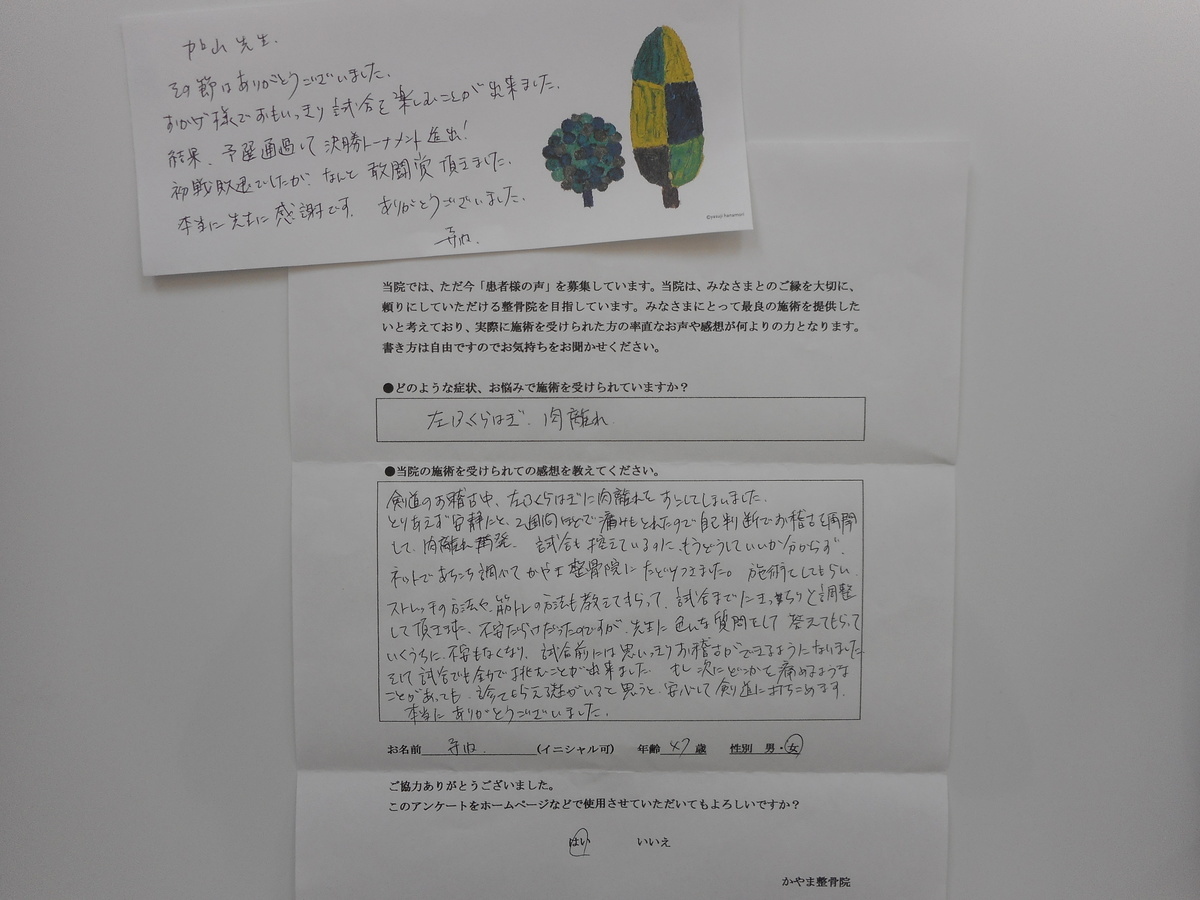 加山先生.
その節はありがとうございました.
おかげ様でおもいっきり試合を楽しむことが出来ました.
結果、予選通過して決勝トーナメント進出!
初戦敗退でしたが、なんと敢闘賞頂きました.
本当に先生に感謝です. ありがとうございました.
©yasuji hanamori
当院では、ただ今「患者様の声」を募集しています。当院は、みなさまとのご縁を大切に、
頼りにしていただける整骨院を目指しています。みなさまにとって最良の施術を提供した
いと考えており、実際に施術を受けられた方の率直なお声や感想が何よりの力となります。
書き方は自由ですのでお気持ちをお聞かせください。
●どのような症状、お悩みで施術を受けられていますか?
左ふくらはぎ、肉離れ
●当院の施術を受けられての感想を教えてください。
剣道のお稽古中、左ふくらはぎに肉離れをおこしてしまいました.
とりあえず安静にと、2週間ほどで痛みもとれたので自己判断でお稽古を再開
して、肉離れ再発. 試合も控えているのに、もうどうしていいか分からず、
ネットであちこち調べてかやま整骨院にたどりつきました。施術をしてもらい、
ストレッチの方法や、筋トレの方法も教えてもらって、試合までにきっちりと調整
して頂きました、不安だらけだったのですが、先生に色んな質問をして答えてもらって
いくうちに、不安もなくなり、試合前には思いっきりお稽古ができるようになりました
そして試合でも全力で挑むことが出来ました. もし次にどこかを痛めるような
ことがあっても、診てもらえる所がいると思うと、安心して剣道に打ちこめます.
本当にありがとうございました.
お名前 (イニシャル可) 年齢 47 歳 性別 男・女
ご協力ありがとうございました。
このアンケートをホームページなどで使用させていただいてもよろしいですか?
はい いいえ
かやま整骨院